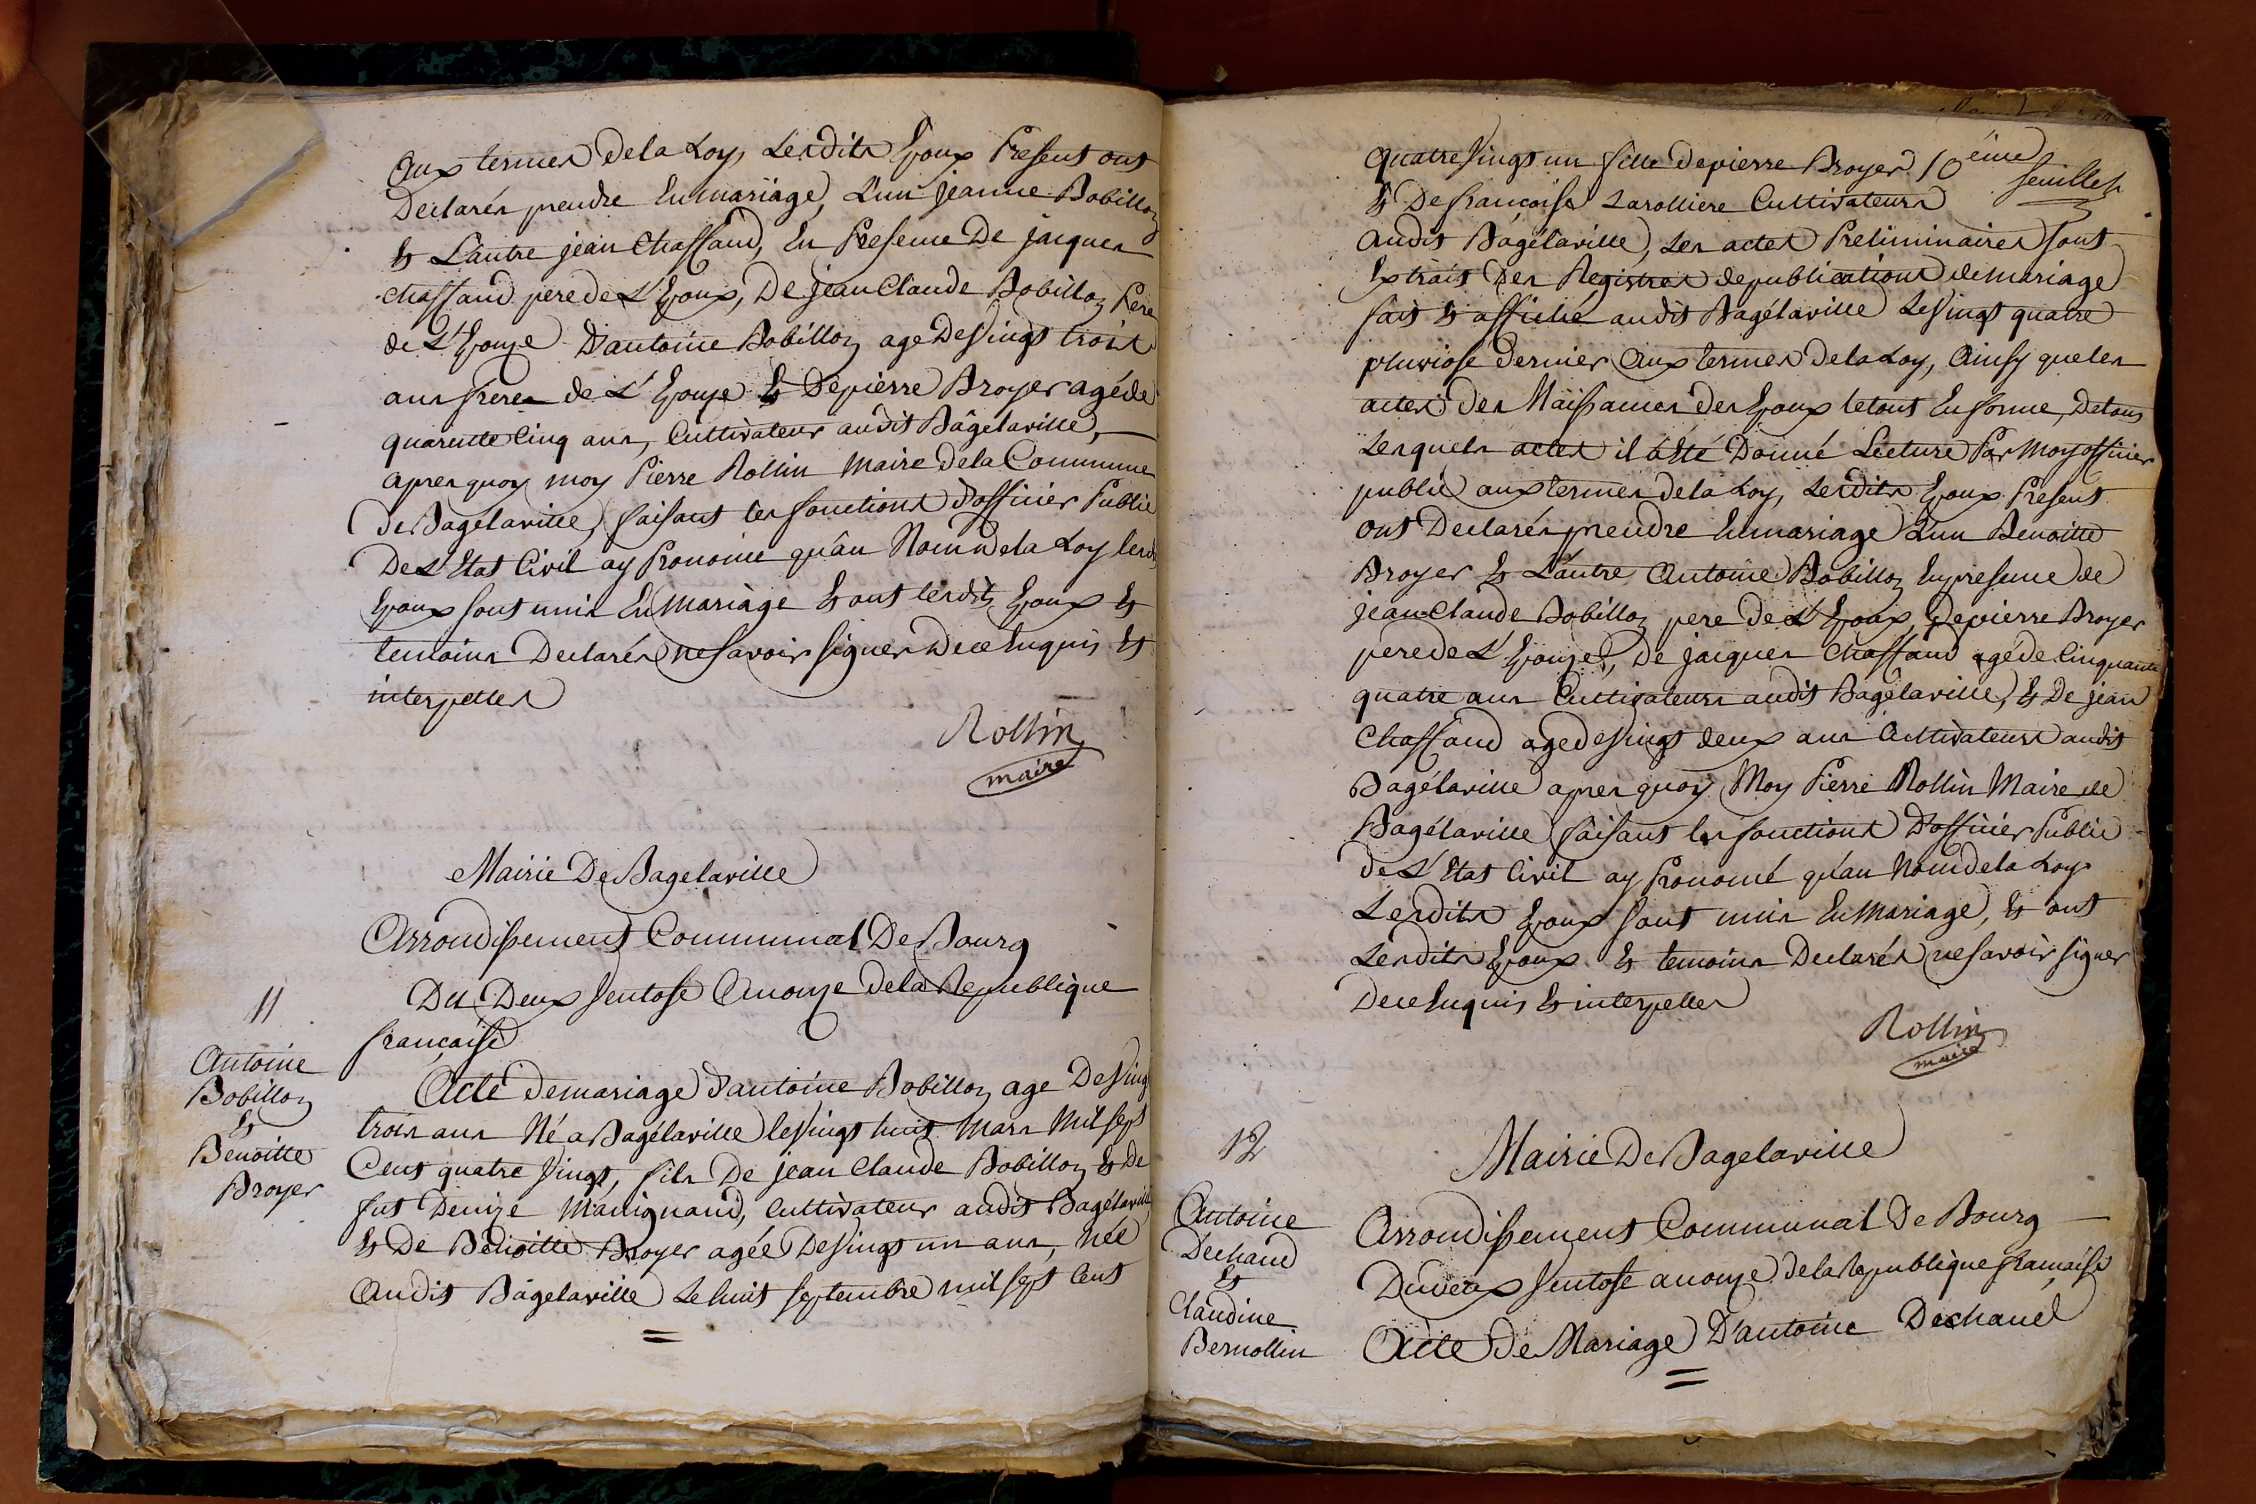 aux termes de la Loy, Lesdits Epoux Présent ont
Declarés prendre En mariage, L'un jeanne Bobillon
Et L'autre jean Chaffaud, En Presence De jacques
Chaffaud pere de L'Epoux, De jean Claude Bobillon Pere
de L'Epouze D'antoine Bobillon age De Vingt trois
ans freres de L'Epouze Et De pierre Broyer agé de
quarente Cinq ans, Cultivateur audit Bâgélaville,
apres quoy moy Pierre Rollin Maire De la Commune
De Bagélaville, faisant les fonctions d'officier Public
De L'Etat Civil ay Prononcé qu'au Nom de la Loy lesd
Epoux sont unis En Mariage Et ont lesdits Epoux Et
temoins Declarés ne savoir signer De ce Enquis Et
interpellés
Rollin
maire
Mairie De Bagelaville
Arrondissement Communal De Bourg
Du Deux Ventose an onze de la Republique
francaise
11
Antoine
Bobillon
Et
Benoitte
Broyer
Acte de mariage d'antoine Bobillon age De Vingt
trois ans Né a Bagélaville le Vingt huit Mars Mil sept
Cent quatre Vingt, fils De jean Claude Bobillon Et De
fut Denize Manignand, Cultivateur audit Bagélaville
Et De Benoitte Broyer agée De Vingt un ans, Née
audit Bâgelaville Le huit septembre mil sept Cent
quatre Vingt un fille De pierre Broyer 10 éme
feuillet
Et De francoise Larolliere Cultivateurs
audit Bagélaville, Les actes Preliminaires sont
Extrait Des Registres de publications de mariage
fait Et affiché audit Bagélaville Le Vingt quatre
pluviose dernier aux termes de la Loy, ainsy que les
actes des Naissances des Epoux le tout En forme, De tous
Lesquels actes il a Eté Donné Lecture Par Moy officier
public aux termes de la Loy, Lesdits Epoux Present
ont Declarés prendre En mariage L'un Benoitte
Broyer Et L'autre Antoine Bobillon En presence de
jean Claude Bobillon pere De L'Epoux, De pierre Broyer
pere de L'Epouze, De jacques Chaffaud agé de Cinquante
quatre ans Cultivateurs audit Bagélaville, Et De jean
Chaffaud age de Vingt deux ans Cultivateurs audit
Bagélaville apres quoy Moy Pierre Rollin Maire de
Bagélaville faisant les fonctions D'officier Public
de L'Etat Civil ay Prononcé qu'au Nom de la Loy
Lesdits Epoux sont unis En Mariage, Et ont
Lesdits Epoux Et temoins Declarés ne savoir signer
De ce Enquis Et interpellés
Rollin
maire
12
Antoine
Dechaud
Et
Claudine
Bernollin
Mairie De Bagelaville
Arrondissement Communal De Bourg
Du deux Ventose an onze de la Republique francaise
Acte de Mariage D'antoine Dechaud